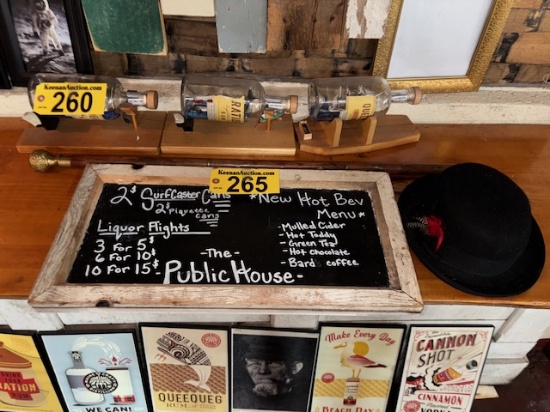 KeenanAuction.com
260
KeenanAuction.com
265
KeenanAuction.com
265
2$ SurfCaster Cans
2$ Piquette
cans
Liquor Flights
3 For 5$
6 For 10$
10 For 15$
-The-
Public House-
*New Hot Bev
Menu*
-Mulled Cider
-Hot Toddy
-Green Tea
-Hot chocolate
-Bard coffee
NATION
RUM
WE CAN!
QUEEQUEG
MAKE EVERY DAY
BEACH DAY
CANNON
SHOT
CINNAMON